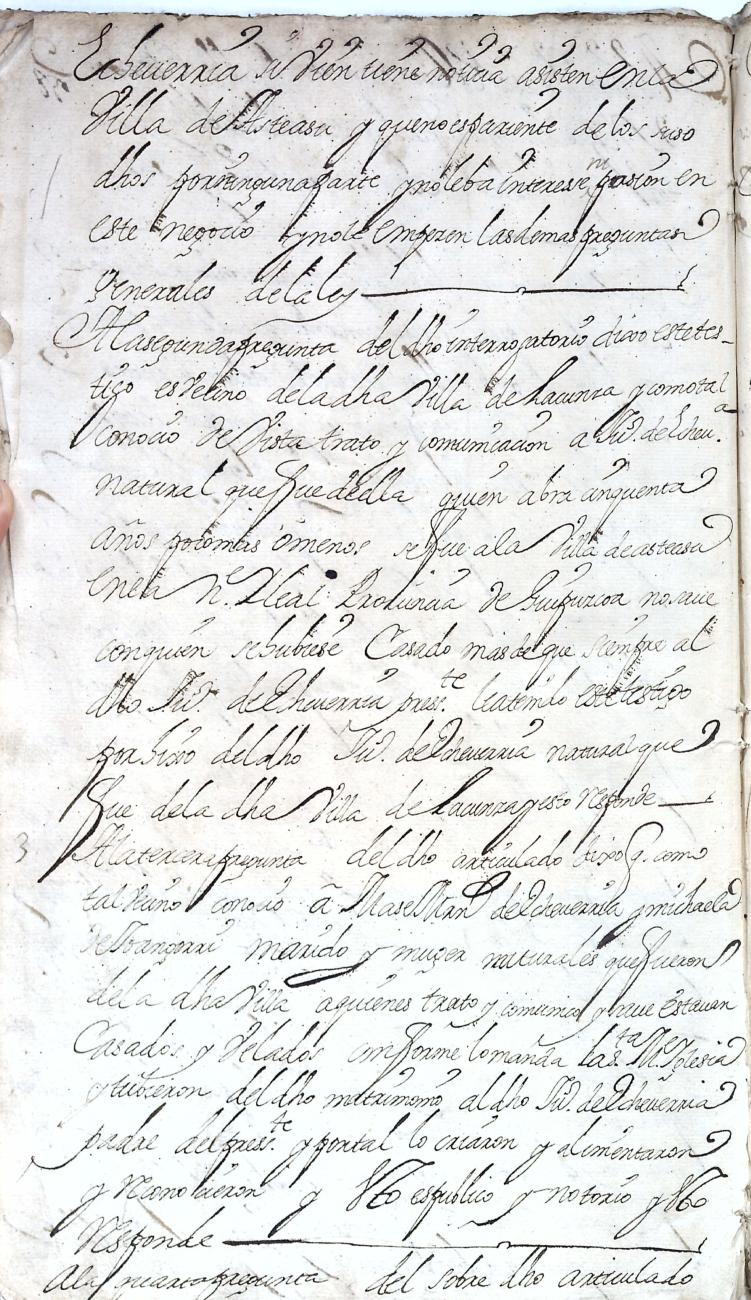 Echeverria si vien tiene noticia asisten en la
Villa de Asteasu y que no es pariente de los suso
dhos por ninguna parte y no le ba interesse ni pasion en
este negocio y no le empezen las demas preguntas
Generales de la ley
A la segunda pregunta del dho interrogatorio dixo este tes-
tigo es Vecino de la dha Villa de Lacunza y como tal
conocio de Vista trato y comunicacion a Ju.º de Echeu.ª
natural que fue de ella quien abra cinquenta
años poco mas o menos se fue a la Villa de asteasu
en la N.e Y leal Provincia de Guipuzcoa no saue
con quien se hubiese Casado mas de que siempre al
dho Ju.º de Echeverria press.te le a tenido este testigo
por hixo del dho Ju.º de Echeverria natural que
fue de la dha Villa de Lacunza y esto Responde
3 A la tercera pregunta del dho articulado dixo q. como
tal Vecino conocio a Mase Mrn de Echeverria y michaela
de marido y muger naturales que fueron
de la dha Villa a quienes trato y comunico y saue estauan
Casados y Velados conforme lo manda la s.ta M.e Yglesia
y tubieron del dho matrimonio al dho Ju.º de Echeverria
padre del press.te y por tal lo criaron y alimentaron
y Reconocieron y esto es publico y notorio y esto
Responde
A la quarta pregunta del sobre dho articulado